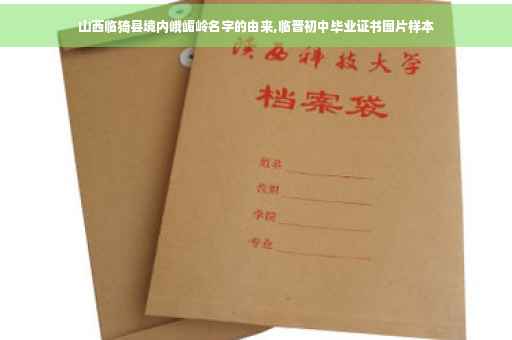 山西临猗县境内峨嵋岭名字的由来,临晋初中毕业证书图片样本
陕西科技大学
档案袋
姓名
学院
专业